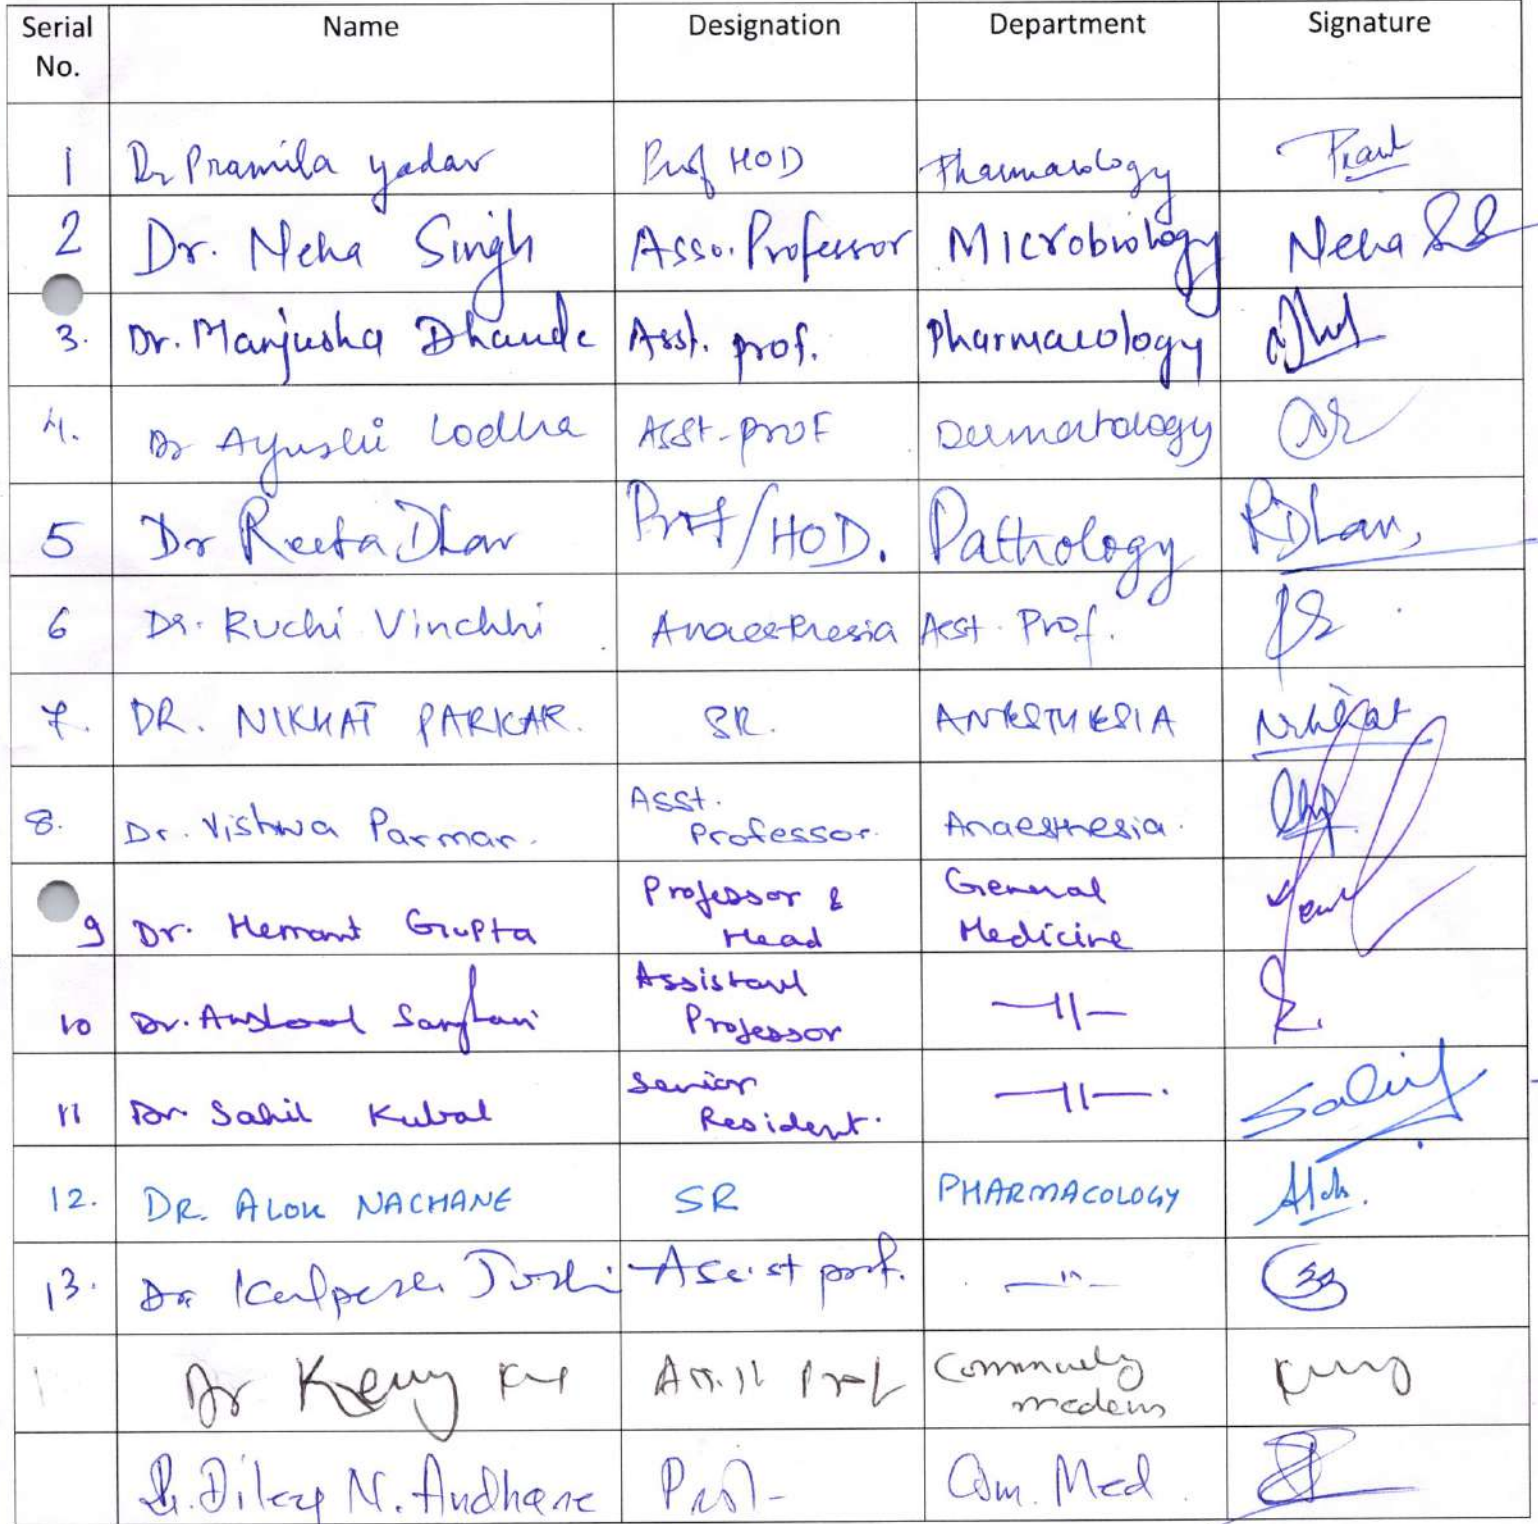 Serial No. Name Designation Department Signature
1 Dr Pramila yadav Prof HOD Pharmacology
2 Dr. Neha Singh Asso. Professor Microbiology Neha
3. Dr. Manjusha Dhande Asst. prof. Pharmacology
4. Dr Ayushi Lodha Asst-prof Dermatology
5 Dr Reeta Dhar Prof/HOD. Pathology RDhar,
6 Dr. Ruchi Vinchhi Anaesthesia Asst. Prof.
7. DR. NIKHAT PARKAR. SR. ANESTHESIA Nikhat
8. Dr. Vishwa Parmar. Asst. Professor. Anaesthesia.
9 Dr. Hemant Gupta Professor & Head General Medicine
10 Dr. Assistant Professor —11—
11 Dr Sahil Kubal Senior Resident. —11—. Sahil
12. DR. ALOK NACHANE SR PHARMACOLOGY Alok.
13. Dr Kalpesh Joshi Assist prof. —"—
Dr Prof Community
Dr. Dilip N. Andhare Prof. Com. Med.